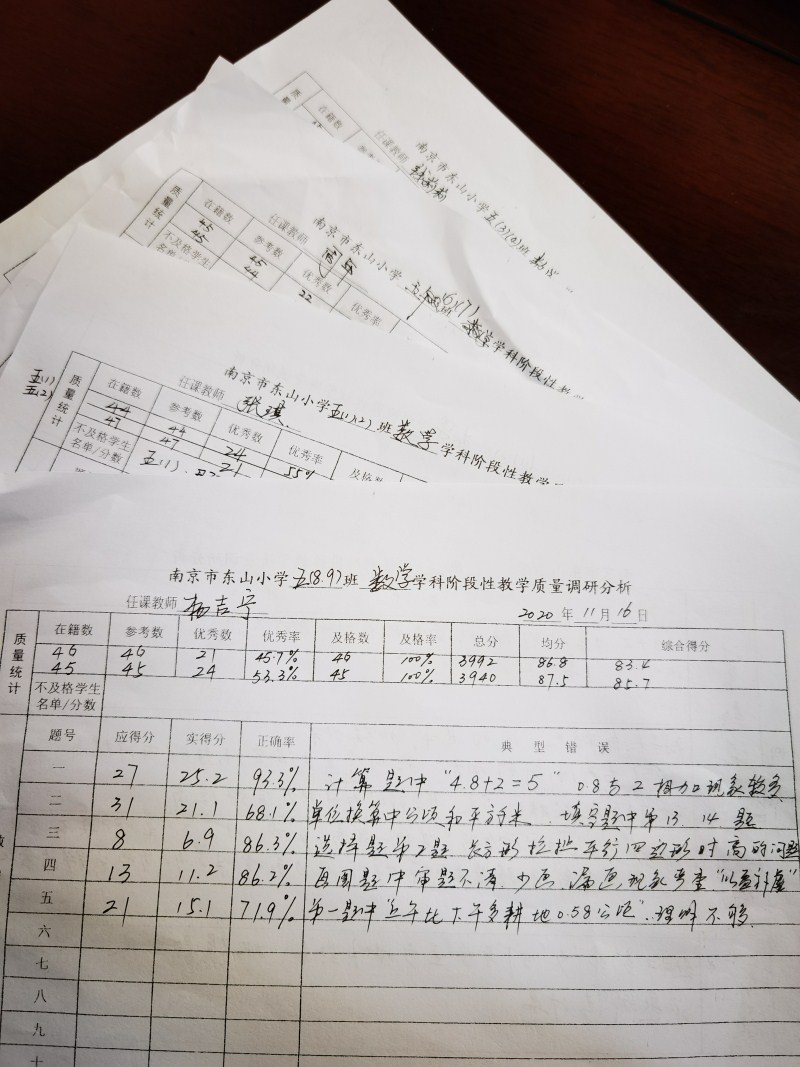 质量统计
在籍数
任课教师 张莉莉
南京市东山小学五(3)(4)班 数学
质量统计 在籍数 参考数 优秀数 优秀率
任课教师
南京市东山小学 五(6)(7) 班 数学学科阶段性教
45 45
45 44 22
不及格学生
名单
南京市东山小学五(1)(2)班数学学科阶段性教学
任课教师 张琪
五(1)
五(2)
质量统计 在籍数 参考数 优秀数 优秀率 及格数
44 44 24 55%
47 47 21
不及格学生
名单/分数
五(1)
南京市东山小学五(8.9)班 数学学科阶段性教学质量调研分析
任课教师 杨吉宁 2020年11月16日
质量统计 在籍数 参考数 优秀数 优秀率 及格数 及格率 总分 均分 综合得分
46 46 21 45.7% 46 100% 3992 86.8 83.4
45 45 24 53.3% 45 100% 3940 87.5 85.7
不及格学生
名单/分数
题号 应得分 实得分 正确率 典型错误
一 27 25.2 93.3% 计算题中“4.8+2=5” 0.8与2相加现象较多
二 31 21.1 68.1% 单位换算中公顷和平方米、填空题中第13、14题
三 8 6.9 86.3% 选择题第2题 长方形拉成平行四边形时高的问题
四 13 11.2 86.2% 画图题中审题不清 少画、漏画现象严重“以盈补虚”
五 21 15.1 71.9% 第一题中“上午比下午多耕地0.58公顷”理解不够
六
七
八
九
十